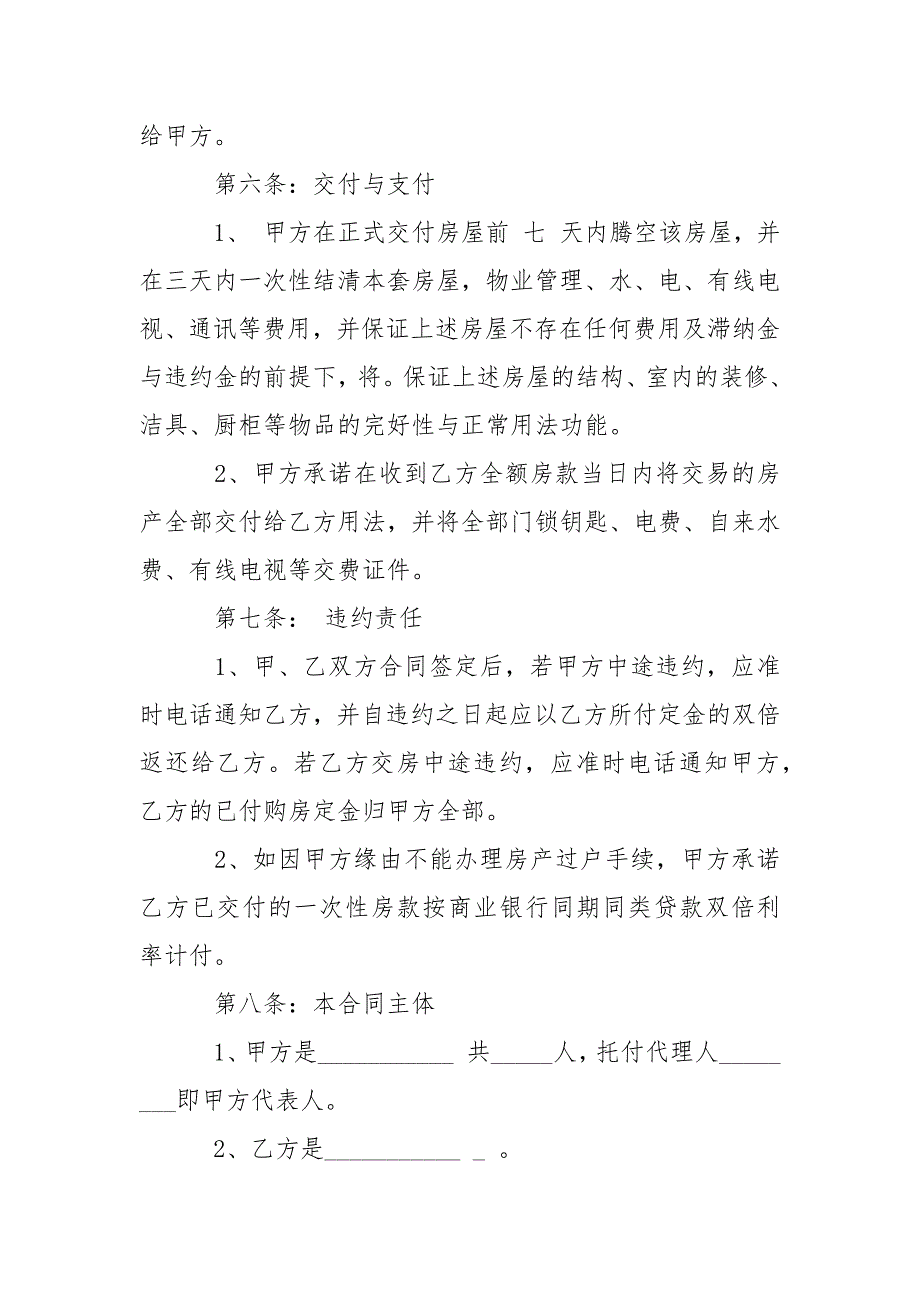 给甲方。
第六条：交付与支付
1、 甲方在正式交付房屋前 七 天内腾空该房屋，并
在三天内一次性结清本套房屋，物业管理、水、电、有线电
视、通讯等费用，并保证上述房屋不存在任何费用及滞纳金
与违约金的前提下，将。保证上述房屋的结构、室内的装修、
洁具、厨柜等物品的完好性与正常用法功能。
2、甲方承诺在收到乙方全额房款当日内将交易的房
产全部交付给乙方用法，并将全部门锁钥匙、电费、自来水
费、有线电视等交费证件。
第七条： 违约责任
1、甲、乙双方合同签定后，若甲方中途违约，应准
时电话通知乙方，并自违约之日起应以乙方所付定金的双倍
返还给乙方。若乙方交房中途违约，应准时电话通知甲方，
乙方的已付购房定金归甲方全部。
2、如因甲方缘由不能办理房产过户手续，甲方承诺
乙方已交付的一次性房款按商业银行同期同类贷款双倍利
率计付。
第八条：本合同主体
1、甲方是___________ 共_____人，托付代理人_____
___即甲方代表人。
2、乙方是___________ _ 。